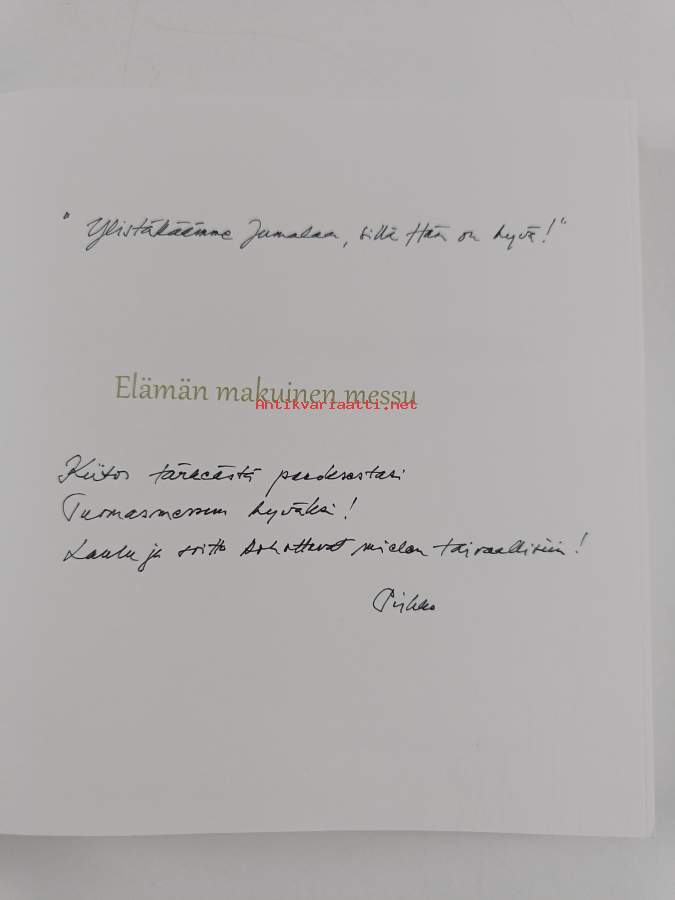 "Ylistäkäämme Jumalaa, sillä Hän on hyvä!"
Elämän makuinen messu
Antikvariaatti.net
Kiitos tärkeästä panoksestasi
Tuomasmessun hyväksi!
Laulu ja soitto kohottavat mielen taivaallisiin!
Pirkko